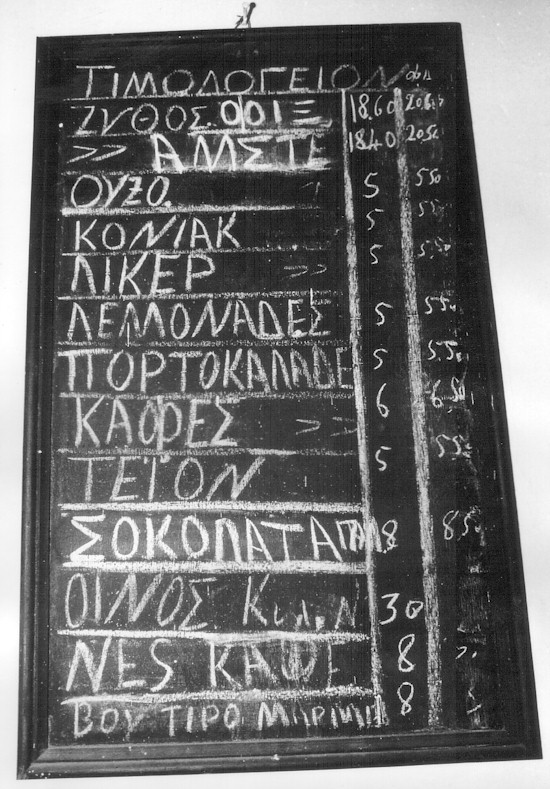 ΤΙΜΟΛΟΓΕΙΟΝ
ΖΥΘΟΣ ΦΙΞ 18.60
>> ΑΜΣΤΕ 18.40 20.50
ΟΥΖΟ. 5 5.50
ΚΟΝΙΑΚ 5
ΛΙΚΕΡ >> 5
ΛΕΜΟΝΑΔΕΣ 5 5.50
ΠΟΡΤΟΚΑΛΑΔΕ 5 5.50
ΚΑΦΕΣ >> 6
ΤΕΪΟΝ 5 5.50
ΣΟΚΟΛΑΤΑ 8 8.50
ΟΙΝΟΣ Κιλ. 30
ΝΕS ΚΑΦΕ 8
ΒΟΥΤΙΡΟ ΜΑΡΜΕΛ 8